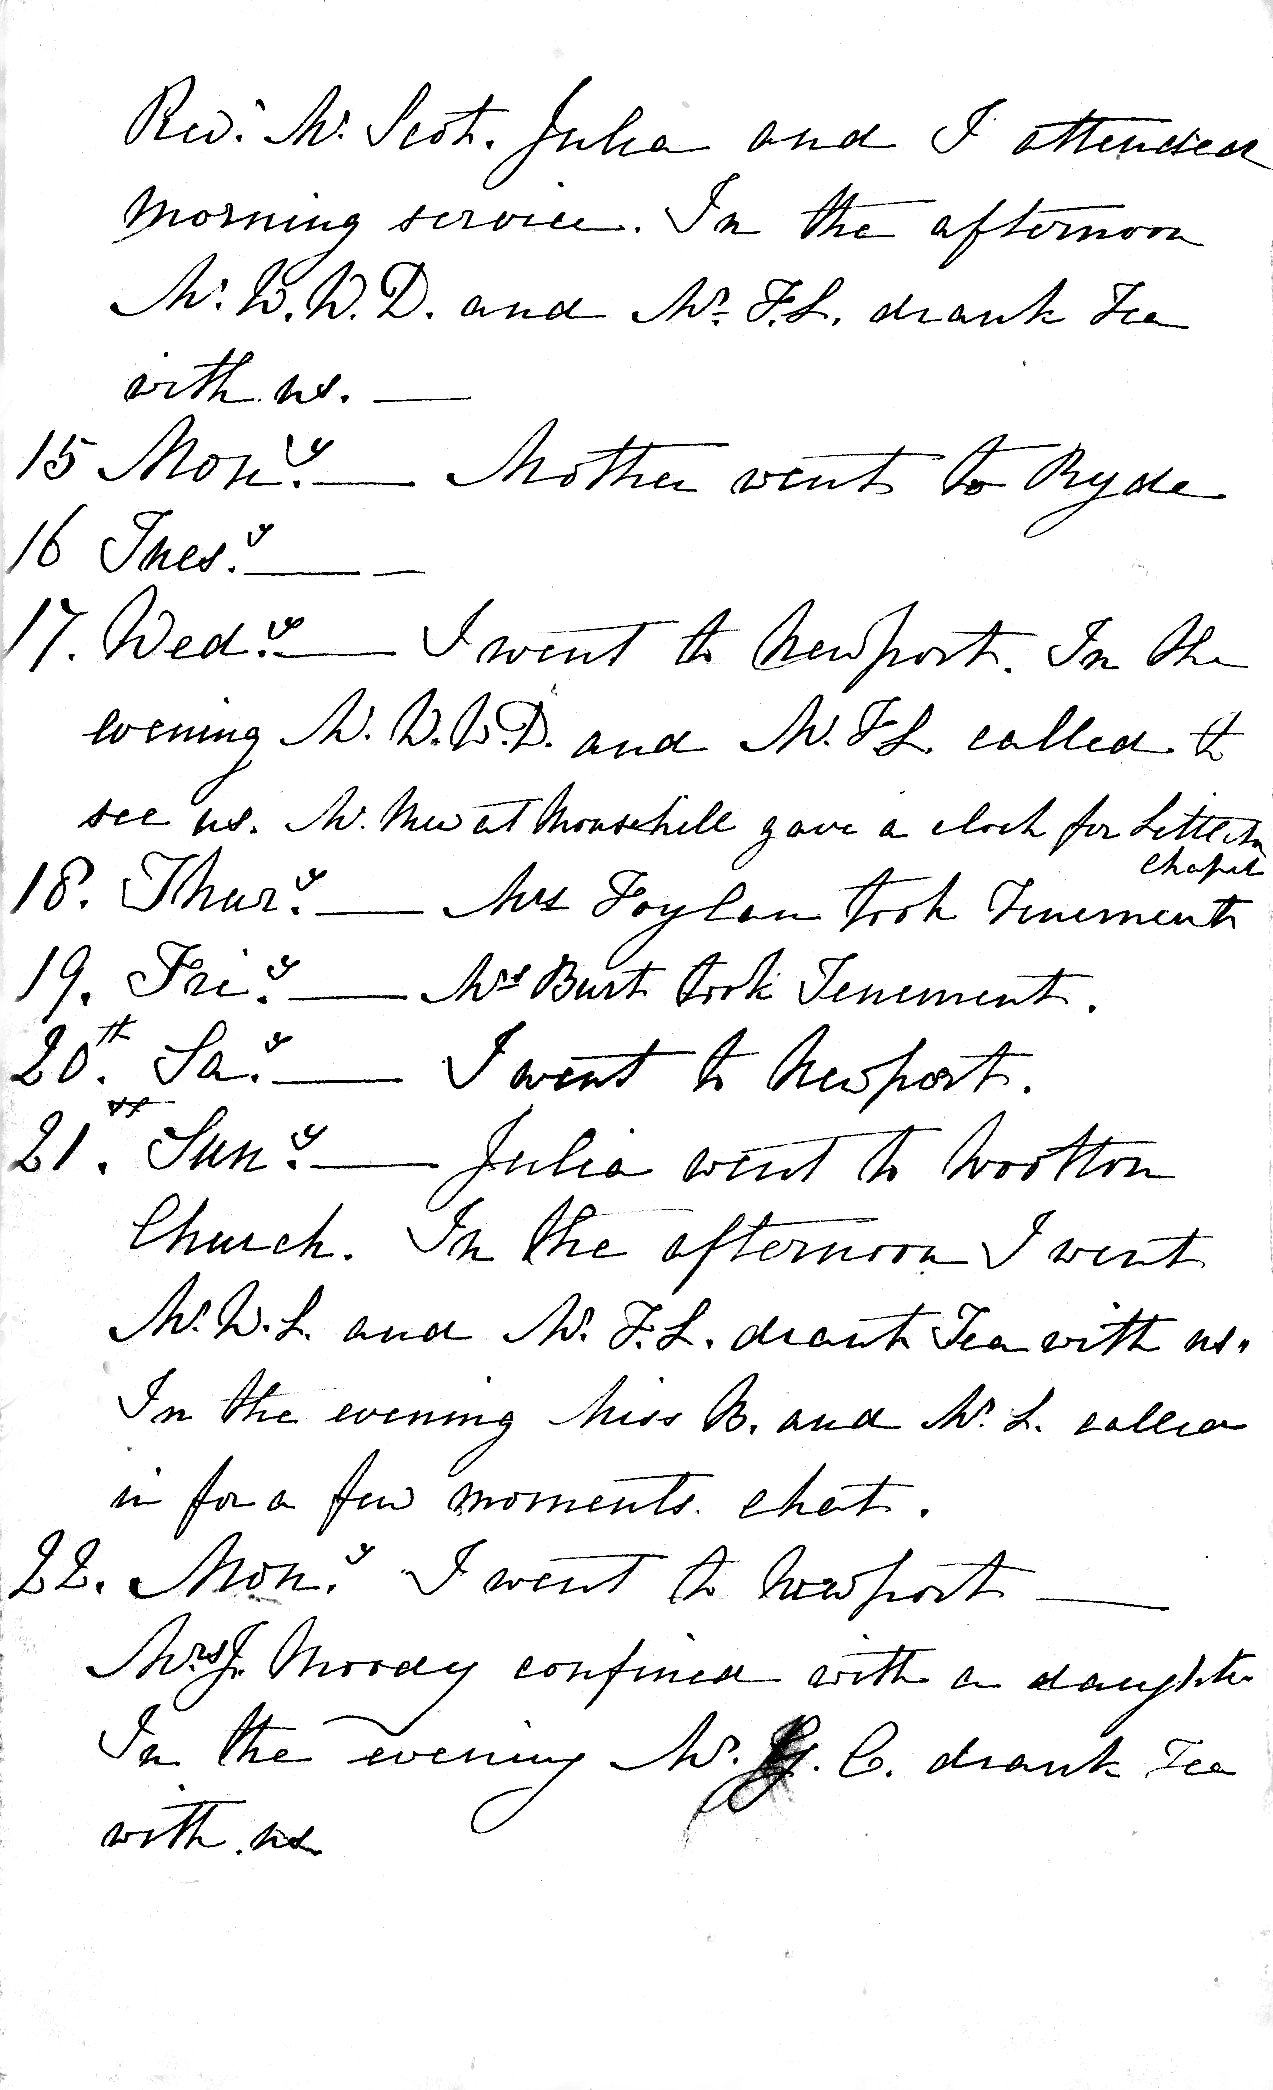 Rev.d Mr. Scot. Julia and I attended
morning service. In the afternoon
Mr. W. W. D. and Mr. F. L. drank Tea
with us. —
15 Mon.y — Mother went to Ryde
16 Tues.y — –
17. Wed.y — I went to Newport. In the
evening Mr. W. W. D. and Mr. F L. called to
see us. Mr. Mew at Mousehill gave a clock for
chapel
18. Thur.y — Mrs Foylan took Tenement
19. Fri.y — Mrs Burt took Tenement.
20th. Sa.y — I went to Newport.
21st. Sun.y — Julia went to Wootton
Church. In the afternoon I went
Mr. W. L. and Mr. F. L. drank Tea with us.
In the evening Miss B. and Mr. L. called
in for a few moments chat.
22. Mon.y I went to Newport —
Mrs J. Moody confined with a daughter
In the evening Mr. G. C. drank Tea
with us